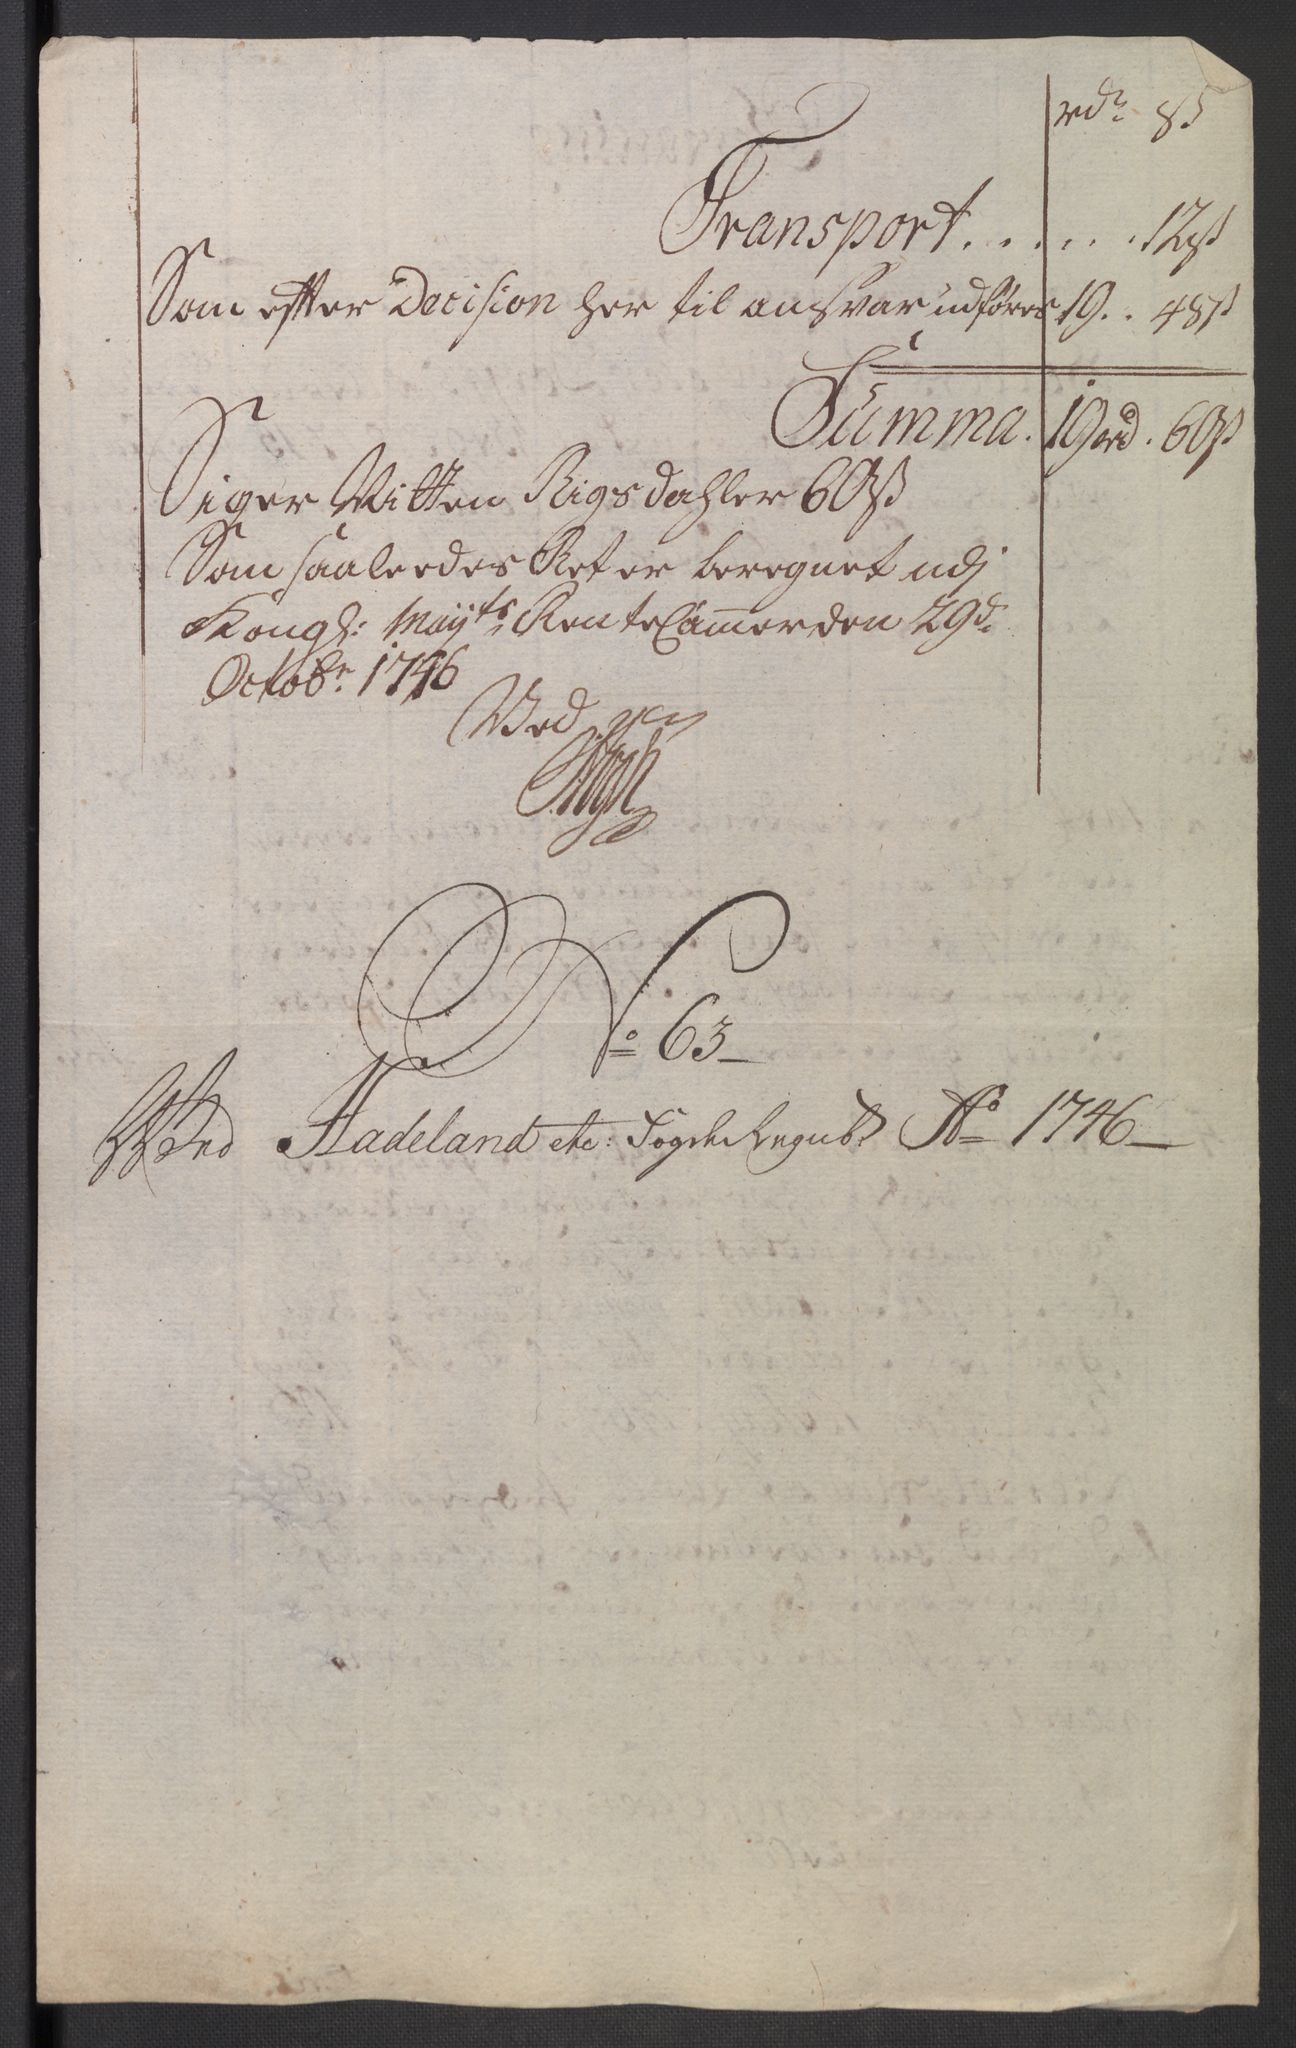 rdr ß
Transport . . . . . . 12ß
Som efter Decision her til ansvar udføres 19 . . 48ß
Summa . 19rd . 60ß
Siger Nitten Rigsdahler 60ß
Som saaleedes Ret er beregnet udj
Kongl: Mayts Rente Cammer den 29d:
Octobr: 1746
No 63
Hadeland etc: Fogderegnsk Ao 1746